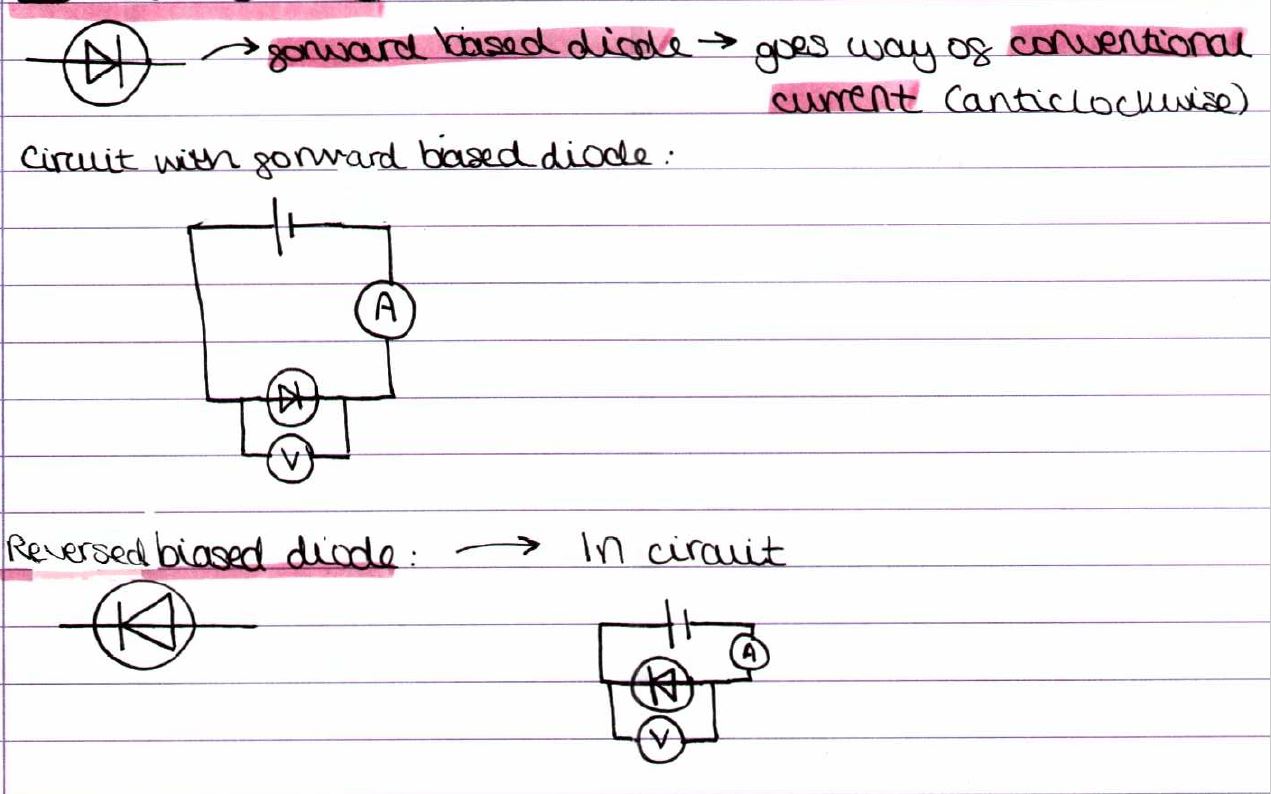 → forward biased diode → goes way of conventional
current (anticlockwise)
Circuit with forward biased diode:
A
V
Reversed biased diode: → In circuit
A
V